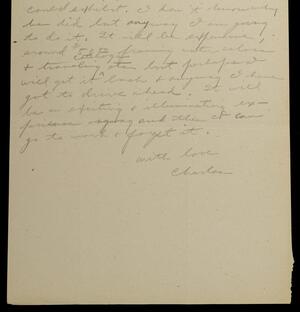 could exhibit. I
he did but anyway I am going
to do it. It will be expensive,
around framing with colors
& traveling etc. but perhaps I
will get it back & anyway I have
got to drive ahead. It will
be an exciting & illuminating ex-
perience anyway and then I can
go to work & forget it.
with love
Charles